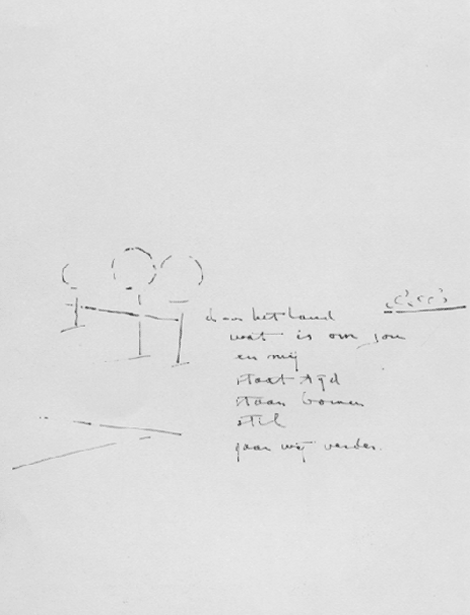 door het land
wat is om jou
en mij
staat tijd
staan bomen
stil
gaan wij verder.